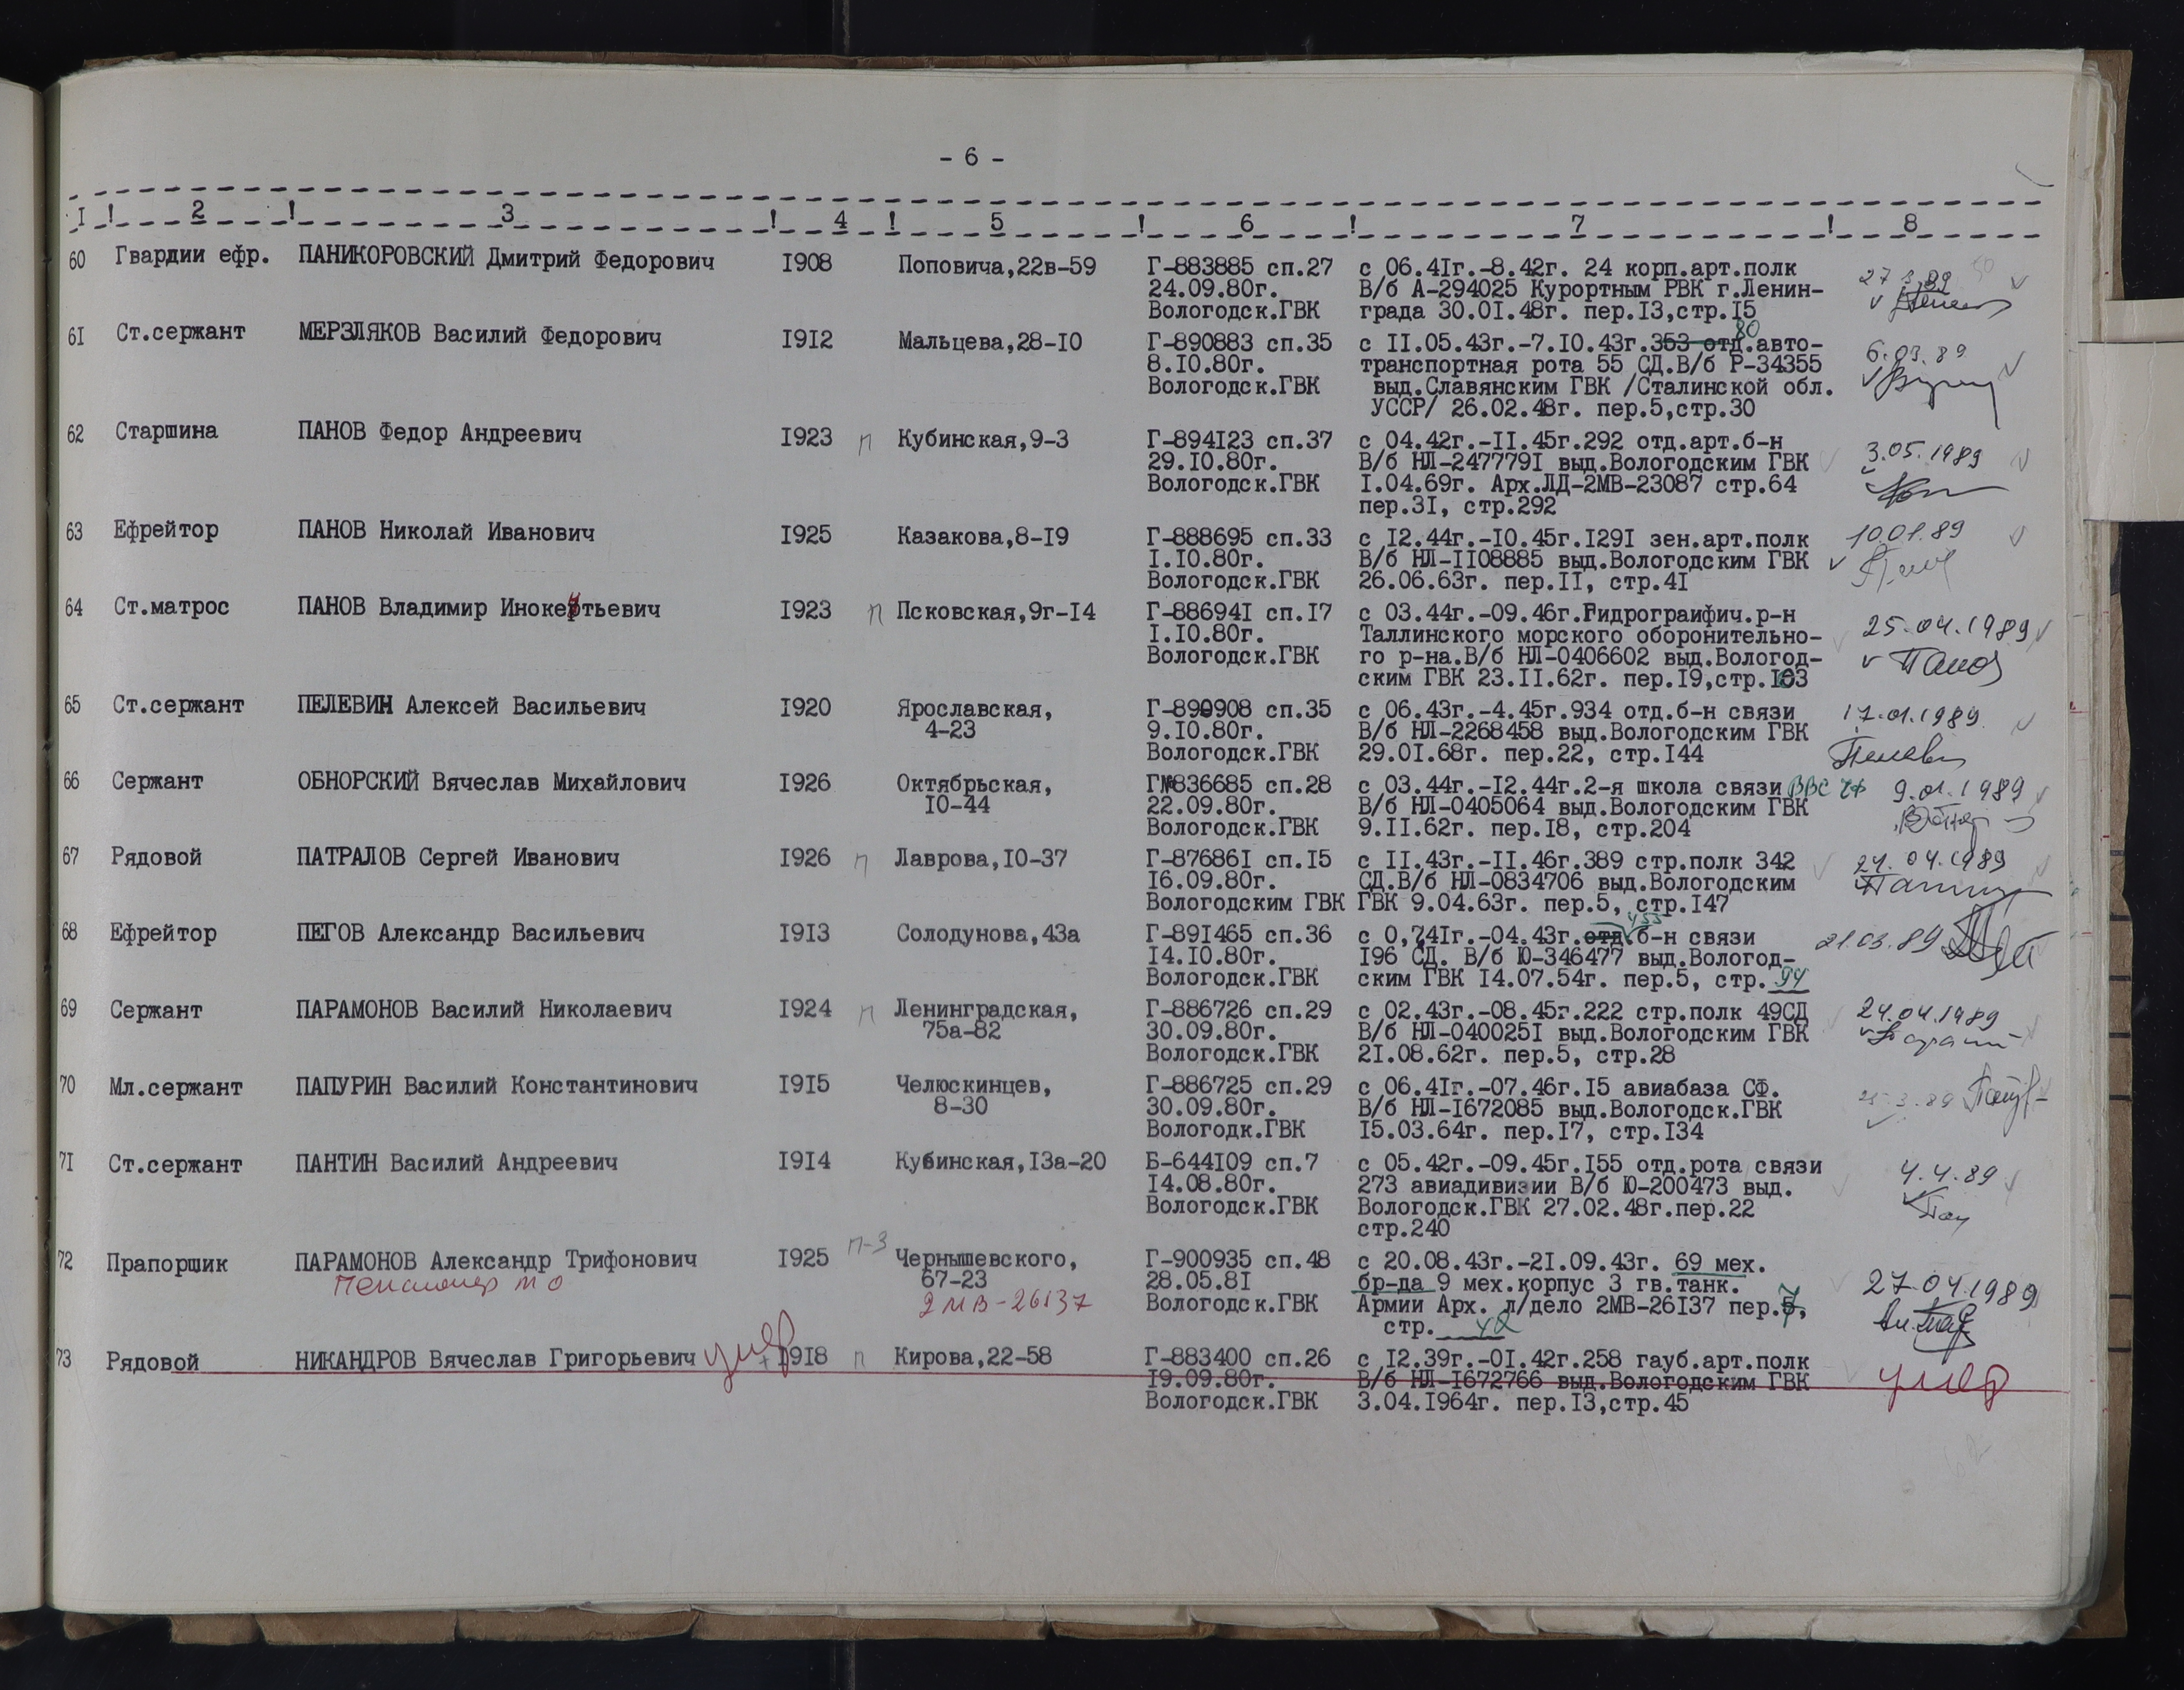 - 6 -
I ! 2 ! 3 ! 4 ! 5 ! 6 ! 7 ! 8
60 Гвардии ефр. ПАНИКОРОВСКИЙ Дмитрий Федорович I908 Поповича,22в-59 Г-883885 сп.27 с 06.4Iг.-8.42г. 24 корп.арт.полк 27 3.89
24.09.80г. В/б А-294025 Курортным РВК г.Ленин-
Вологодск.ГВК града 30.0I.48г. пер.I3,стр.I5
80
6I Ст.сержант МЕРЗЛЯКОВ Василий Федорович I9I2 Мальцева,28-I0 Г-890883 сп.35 с II.05.43г.-7.I0.43г.353 отд.авто- 6.03.89
8.I0.80г. транспортная рота 55 СД.В/б Р-34355
Вологодск.ГВК выд.Славянским ГВК /Сталинской обл.
УССР/ 26.02.48г. пер.5,стр.30
62 Старшина ПАНОВ Федор Андреевич I923 п Кубинская,9-3 Г-894I23 сп.37 с 04.42г.-II.45г.292 отд.арт.б-н 3.05.1989
29.I0.80г. В/б НЛ-247779I выд.Вологодским ГВК
Вологодск.ГВК I.04.69г. Арх.ЛД-2МВ-23087 стр.64
пер.3I, стр.292
63 Ефрейтор ПАНОВ Николай Иванович I925 Казакова,8-I9 Г-888695 сп.33 с I2.44г.-I0.45г.I29I зен.арт.полк 10.01.89
I.I0.80г. В/б НЛ-II08885 выд.Вологодским ГВК
Вологодск.ГВК 26.06.63г. пер.II, стр.4I
64 Ст.матрос ПАНОВ Владимир Инокентьевич I923 п Псковская,9г-I4 Г-88694I сп.I7 с 03.44г.-09.46г.Гидрограифич.р-н 25.04.1989
I.I0.80г. Таллинского морского оборонительно-
Вологодск.ГВК го р-на.В/б НЛ-0406602 выд.Вологод- Панов
ским ГВК 23.II.62г. пер.I9,стр.I03
65 Ст.сержант ПЕЛЕВИН Алексей Васильевич I920 Ярославская, Г-890908 сп.35 с 06.43г.-4.45г.934 отд.б-н связи 17.01.1989
4-23 9.I0.80г. В/б НЛ-2268458 выд.Вологодским ГВК
Вологодск.ГВК 29.0I.68г. пер.22, стр.I44 Пелевин
66 Сержант ОБНОРСКИЙ Вячеслав Михайлович I926 Октябрьская, Г-836685 сп.28 с 03.44г.-I2.44г.2-я школа связи ВВС ЧФ 9.01.1989
I0-44 22.09.80г. В/б НЛ-0405064 выд.Вологодским ГВК
Вологодск.ГВК 9.II.62г. пер.I8, стр.204
67 Рядовой ПАТРАЛОВ Сергей Иванович I926 п Лаврова,I0-37 Г-87686I сп.I5 с II.43г.-II.46г.389 стр.полк 342 24.04.1989
I6.09.80г. СД.В/б НЛ-0834706 выд.Вологодским
Вологодским ГВК ГВК 9.04.63г. пер.5, стр.I47
455
68 Ефрейтор ПЕГОВ Александр Васильевич I9I3 Солодунова,43а Г-89I465 сп.36 с 0,74Iг.-04.43г.отд.б-н связи 21.03.89
I4.I0.80г. I96 СД. В/б Ю-346477 выд.Вологод-
Вологодск.ГВК ским ГВК I4.07.54г. пер.5, стр.94
69 Сержант ПАРАМОНОВ Василий Николаевич I924 п Ленинградская, Г-886726 сп.29 с 02.43г.-08.45г.222 стр.полк 49СД 24.04.1989
75а-82 30.09.80г. В/б НЛ-040025I выд.Вологодским ГВК
Вологодск.ГВК 2I.08.62г. пер.5, стр.28
70 Мл.сержант ПАПУРИН Василий Константинович I9I5 Челюскинцев, Г-886725 сп.29 с 06.4Iг.-07.46г.I5 авиабаза СФ.
8-30 30.09.80г. В/б НЛ-I672085 выд.Вологодск.ГВК
Вологодк.ГВК I5.03.64г. пер.I7, стр.I34
7I Ст.сержант ПАНТИН Василий Андреевич I9I4 Кубинская,I3а-20 Б-644I09 сп.7 с 05.42г.-09.45г.I55 отд.рота связи 4.4.89
I4.08.80г. 273 авиадивизии В/б Ю-200473 выд.
Вологодск.ГВК Вологодск.ГВК 27.02.48г.пер.22
стр.240
72 Прапорщик ПАРАМОНОВ Александр Трифонович I925 п-3 Чернышевского, Г-900935 сп.48 с 20.08.43г.-2I.09.43г. 69 мех. 27.04.1989
Пенсионер МО 67-23 28.05.8I бр-да 9 мех.корпус 3 гв.танк.
2МВ-26137 Вологодск.ГВК Армии Арх. л/дело 2МВ-26I37 пер.5, 7
стр. 42
73 Рядовой НИКАНДРОВ Вячеслав Григорьевич умер + I9I8 п Кирова,22-58 Г-883400 сп.26 с I2.39г.-0I.42г.258 гауб.арт.полк
I9.09.80г. В/б НЛ-I672766 выд.Вологодским ГВК умер
Вологодск.ГВК 3.04.I964г. пер.I3,стр.45